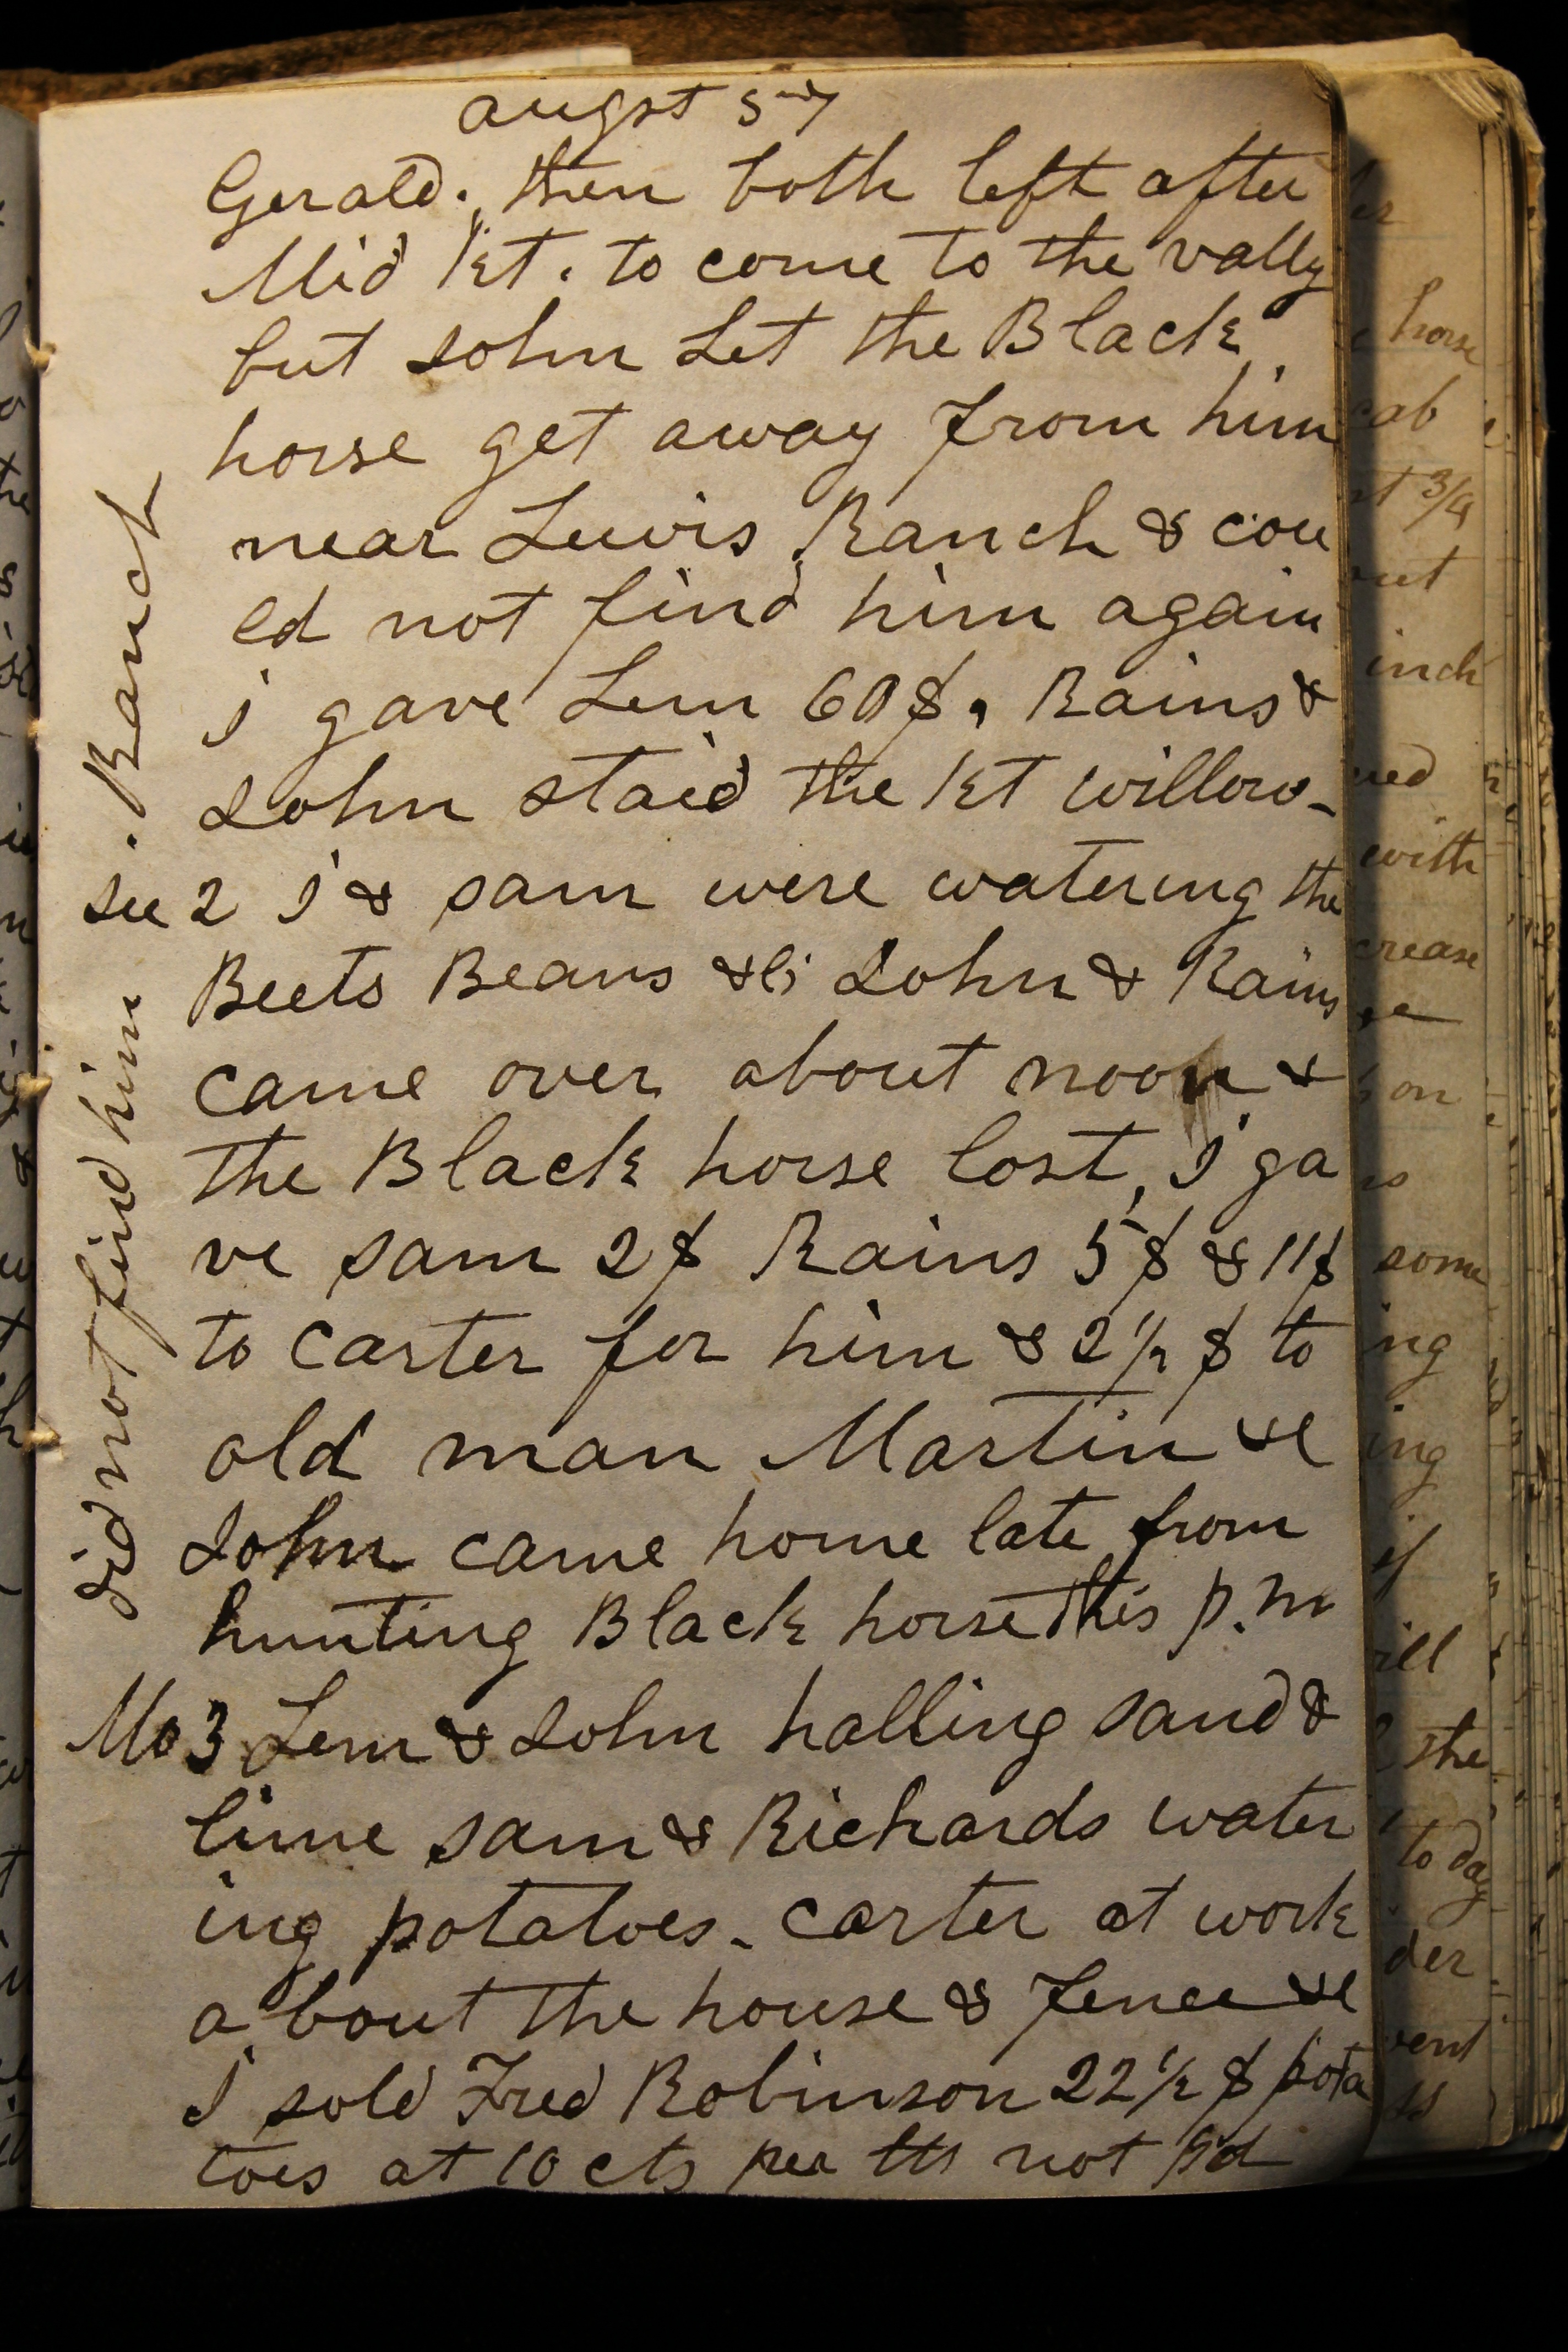 augst 57
Gerald. then both left after
Mid Kt. to come to the vally
but John Let the Black
horse get away from him
near Lewis Ranch & cou
ld not find him again
i gave Lem 60$, Rains &
John staid the Kt willow-
su 2 i & sam were watering the
Beets Beans &c; John & Rains
came over about noon &
the Black horse lost, i ga
ve sam 2$ Rains 5$ & 11$
to carter for him & 2 1/2 $ to
old man Martin &c
John came home late from
hunting Black horse this p.m
Mo 3 Lem & John halling sand &
lime sam & Richards water
ing potatoes. carter at work
about the house & Fence &c
I sold Fred Robinson 22 1/2 $ pota
toes at 10 cts per lb not pd
did not find him
. Ranch
horse
cab
3/4
inch
with
crease
on
some
ing
ing
if
ill
the
to day
der